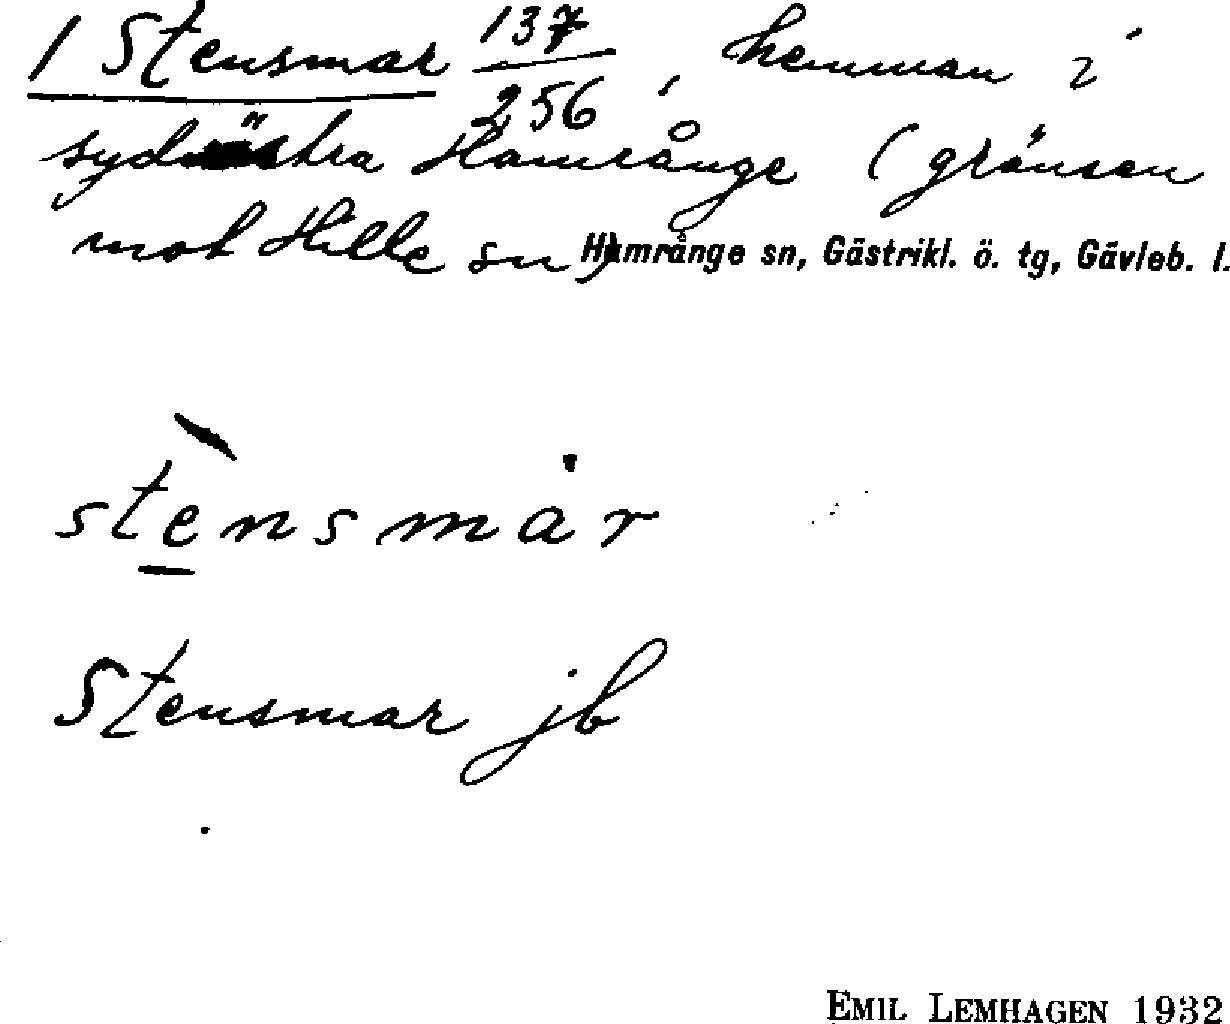 1 Stensmar 137/256, hemman i
sydöstra Hamrånge (gränsen
mot Hille sn) Hamrånge sn, Gästrikl. ö. tg, Gävleb. l.
stènsmȧr
Stensmar jb
EMIL LEMHAGEN 1932